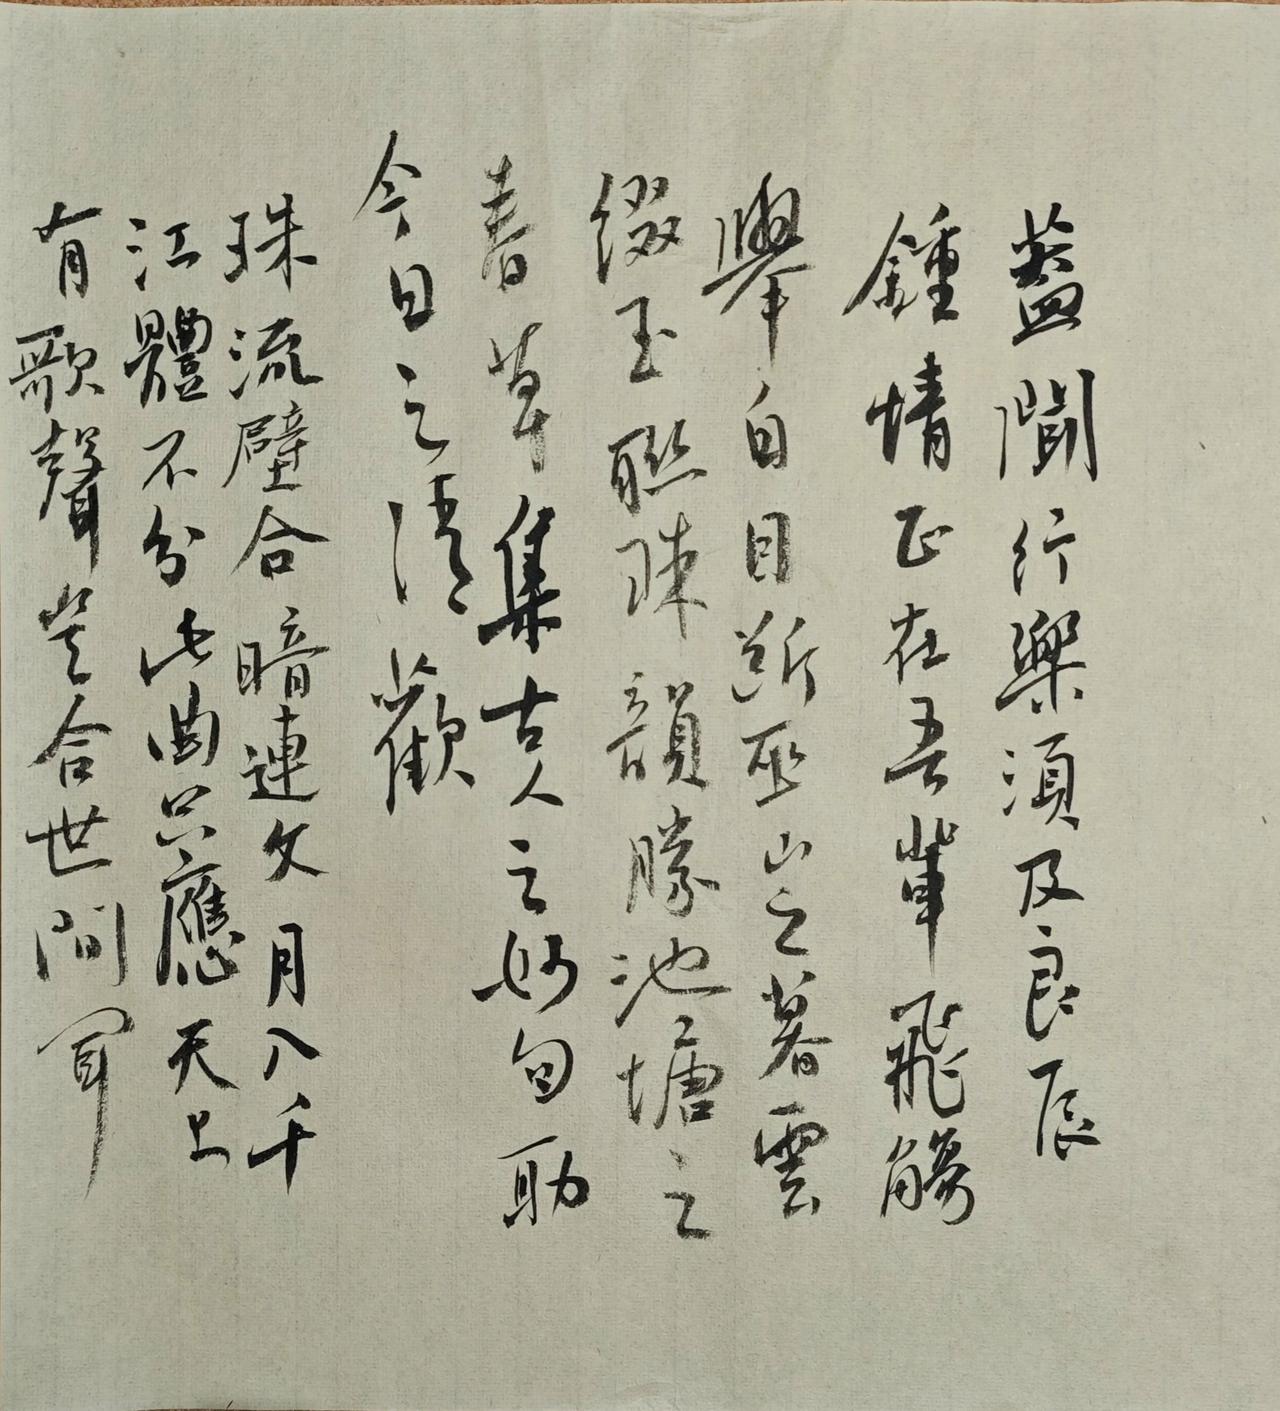 蓋聞行樂須及良辰
鍾情正在吾輩飛觴
舉白目斷巫山之暮雲
綴玉聯珠韻勝池塘之
春草集古人之妙句助
今日之清歡
珠流璧合暗連文月入千
江體不分此曲只應天上
有歌聲豈合世間聞